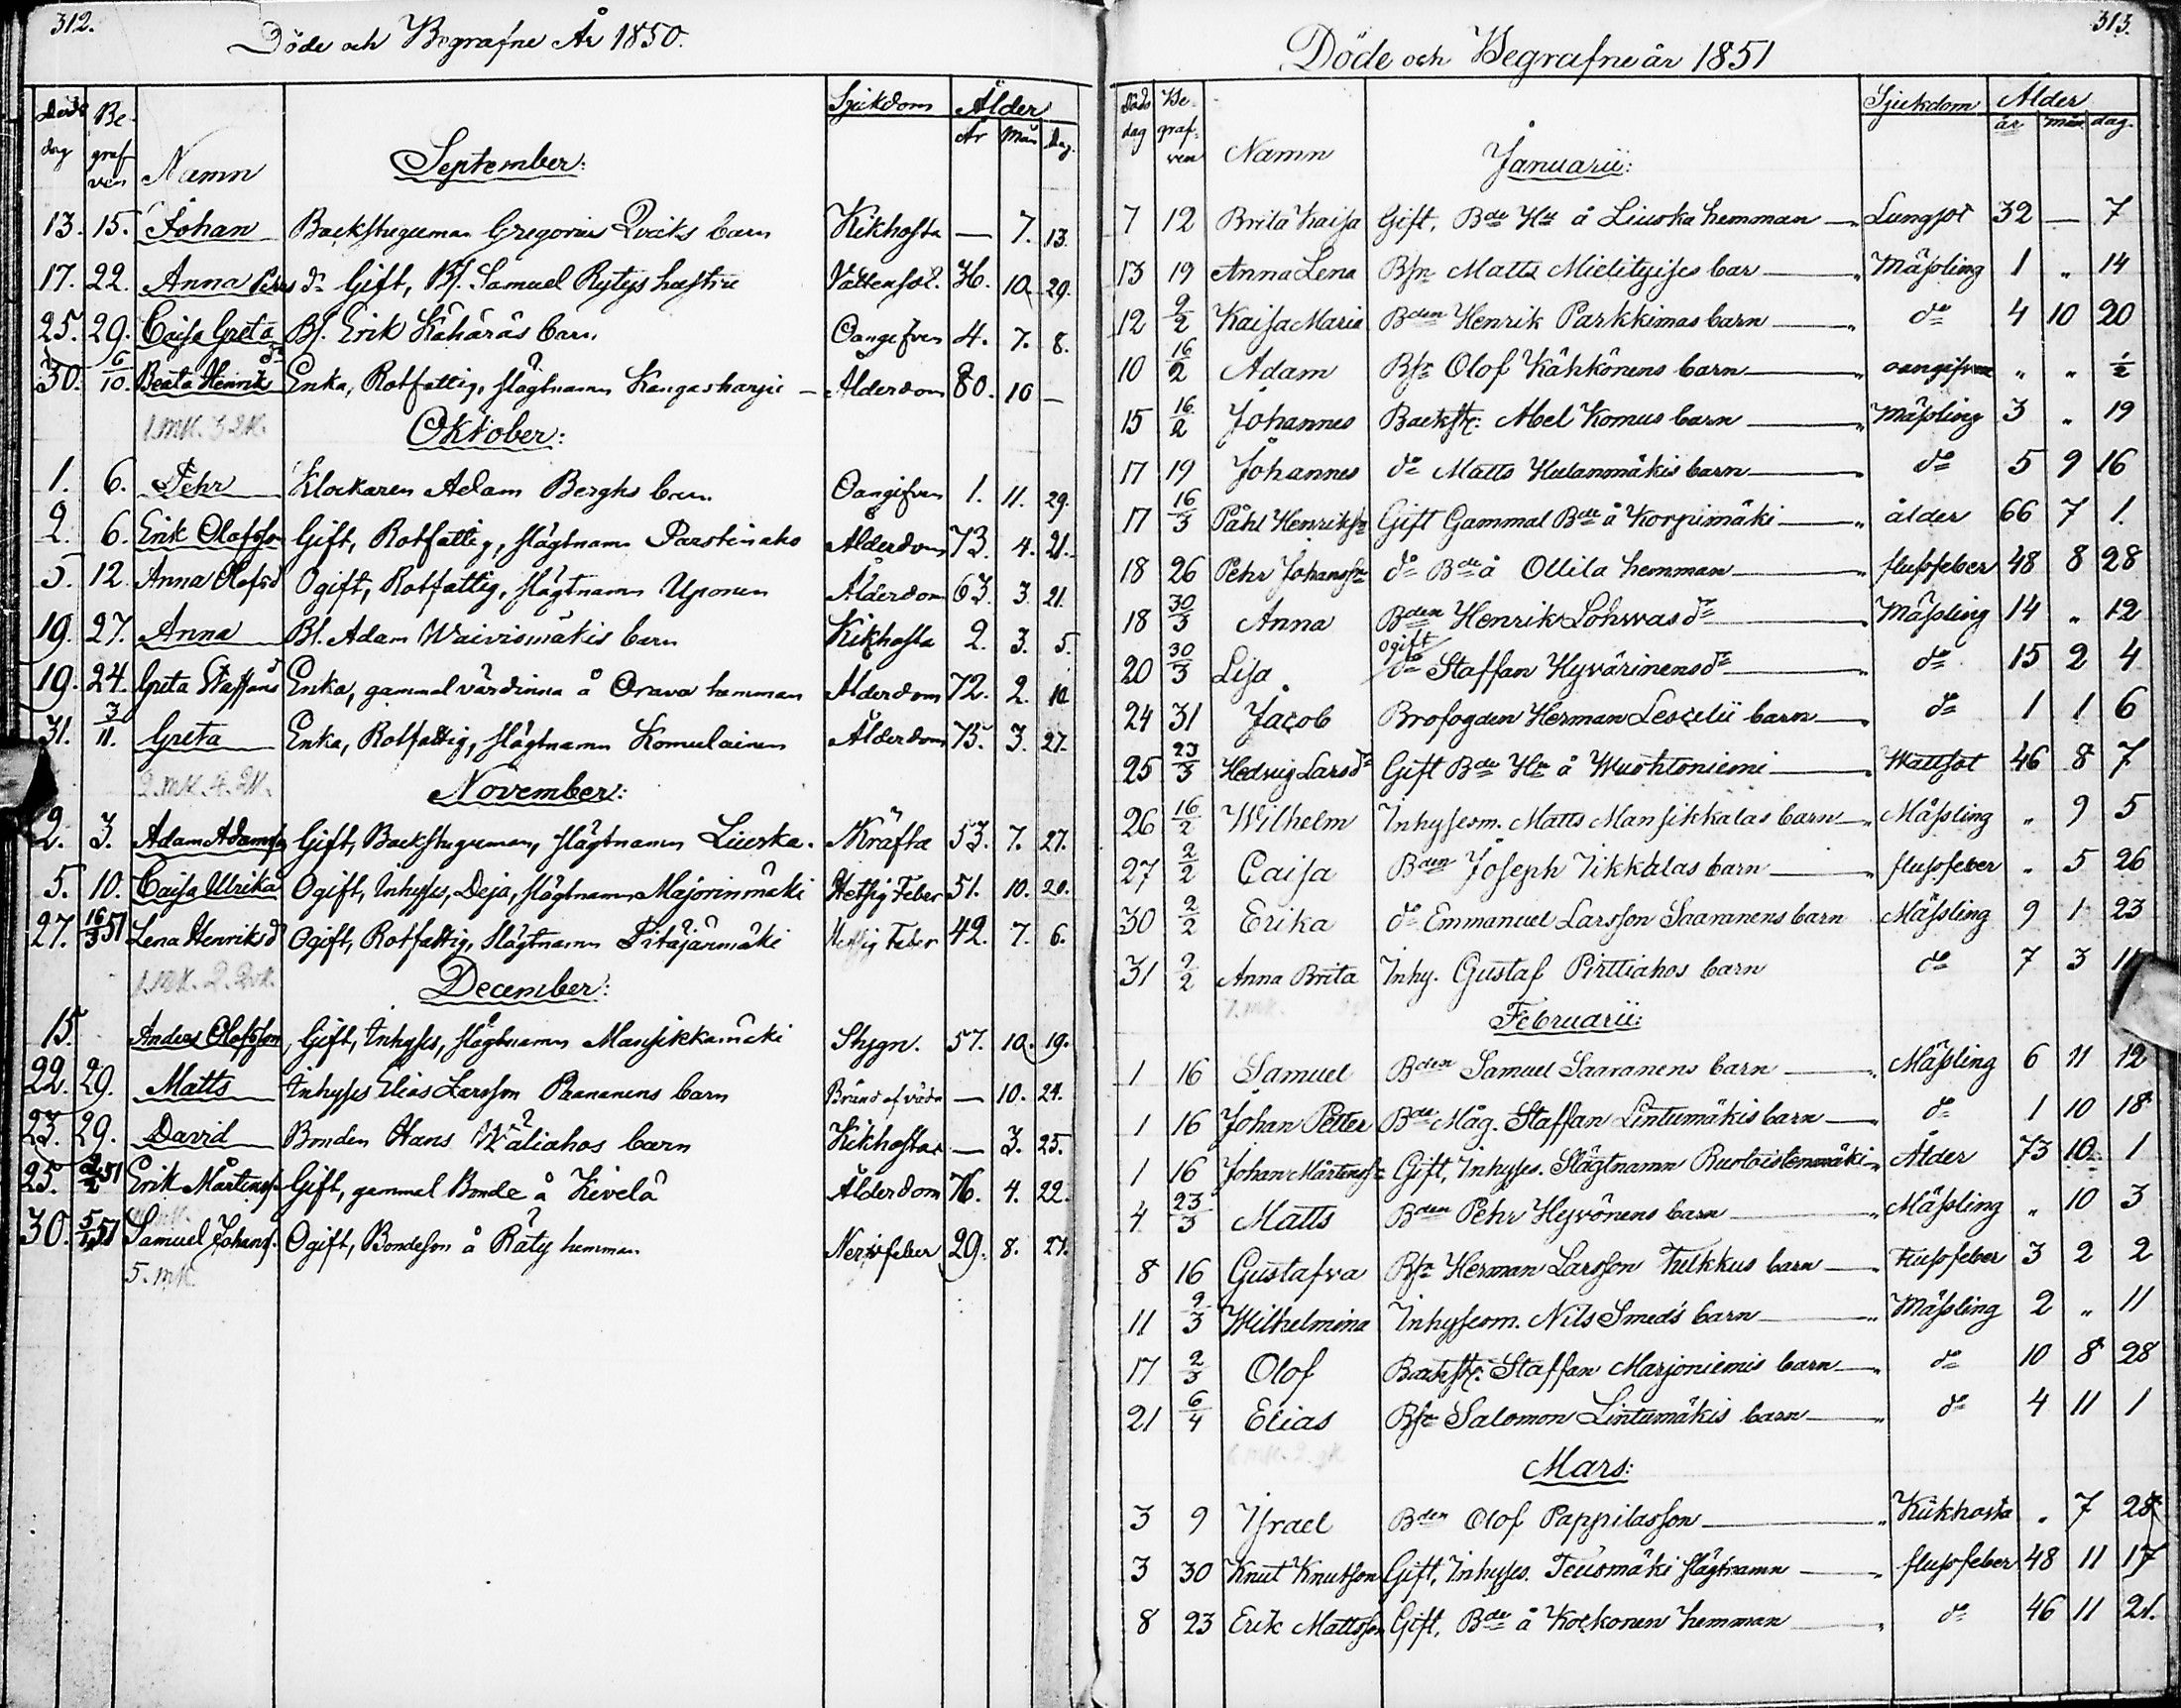 312.
Döde och Begrafne År 1850.
Döds dag Be grafven Namn September: Sjukdom Ålder År Mån Dag.
13. 15. Johan Backstuguman Gregorius Qvicks barn Kikhosta — 7. 13.
17. 22. Anna Pehrs dr Gift, Bf. Samuel Rytys hustru Vattensot. 36. 10. 29.
25. 29. Caisa Greta Bf. Erik Kähäräs barn Oangifven 4. 7. 8.
30. 6/10. Beata Henriksdr Enka, Rotfattig, slägtnamn Kangasharju — Ålderdom 80. 10 —
1 mk. 3 qk.
Oktober:
1. 6. Pehr Klockaren Adam Berghs barn Oangifven 1. 11. 29.
2. 6. Erik Olofsson Gift, Rotfattig, slägtnamn Parstinaho Ålderdom 73. 4. 21.
5. 12. Anna Olofsd Ogift, Rotfattig, slägtnamn Uponen Ålderdom 63. 3. 21.
19. 27. Anna Bf. Adam Waivismäkis barn Kikhosta 2. 3. 5.
19. 24. Greta Staffansd Enka, gammal värdinna å Orava hemman Ålderdom 72. 2. 10
31. 3/11. Greta Enka, Rotfattig, slägtnamn Komulainen Ålderdom 75. 3. 27.
2. mk. 4. qk.
November:
2. 3. Adam Adamsson Gift, Backstuguman, slägtnamn Liuska. Kräfta 53. 7. 27.
5. 10. Caisa Ulrika Ogift, Inhyses, Deja, slägtnamn Majorinmäki Hetsig Feber 51. 10. 20.
27. 16/3 51 Lena Henriksd Ogift, Rotfattig, slägtnamn Pitäjänmäki Hetsig Feber 42. 7. 6.
1 mk. 2. qk.
December:
15. Anders Olofsson, Gift, Inhyses, slägtnamn Mansikkamäki Stygn. 57. 10. 19.
22. 29. Matts Inhyses Elias Larsson Paananens barn Bränd af — 10. 24.
23. 29. David Bonden Hans Wäliahos barn Kikhosta — 3. 25.
25. 2/2 51 Erik Mårtenss. Gift, gammal Bonde å Kivelä Ålderdom 76. 4. 22.
30. 5/1 51 Samuel Johans. Ogift, Bondeson å Räty hemman Nervfeber 29. 8. 27.
5. mk.
313.
Döde och Begrafne år 1851
Döds dag Be-graf-ven Namn Januarii: Sjukdom Ålder år mån dag.
7 12 Brita Kaisa Gift, Bde Hu å Liuska hemman — Lungsot 32 — 7
13 19 Anna Lena Bfn Matts Mielityises bar — Mässling 1 " 14
12 9/2 Kaisa Maria Bden Henrik Parkkimas barn — do 4 10 20
10 16/2 Adam Bfn Olof Kähkönens barn — oangifven " " 1/2
15 16/2 Johannes Backst: Abel Komus barn — Mässling 3 " 19
17 19 Johannes do Matts Hulanmäkis barn — do 5 9 16
17 16/3 Påhl Henriksn Gift Gammal Bde å Korpimäki — ålder 66 7 1.
18 26 Pehr Johanssn do Bde å Ollila hemman — flussfeber 48 8 28
18 30/3 Anna Bden Henrik Lohwas dr Mässling 14 " 12
20 30/3 Lisa ogift do Staffan Hyvärinens dr — do 15 2 4
24 31 Jacob Brofogden Herman Lescelii barn — do 1 1 6
25 23/3 Hedvig Larsdr Gift Bde Hu å Wuohtoniemi — Wattsot 46 8 7
26 16/2 Wilhelm Inhysesm. Matts Mansikkalas barn — Mässling " 9 5
27 2/2 Caisa Bden Joseph Tikkalas barn — flussfeber " 5 26
30 2/2 Erika do Emmanuel Larsson Saaranens barn Mässling 9 1 23
31 9/2 Anna Brita Inhy. Gustaf Pirttiahos barn do 7 3 11
Februarii:
1 16 Samuel Bden Samuel Saaranens barn — Mässling 6 11 12
1 16 Johan Petter Bde Måg. Staffan Lintumäkis barn — do 1 10 18
1 16 Johan Mårtenssn Gift, Inhyses. Slägtnamn Ruotoistenmäki Ålder 73 10 1
4 23/3 Matts Bden Pehr Hyvönens barn — Mässling " 10 3
8 16 Gustafva Bfn Herman Larsson Tulkkus barn — Flussfeber 3 2 2
11 9/3 Wilhelmina Inhysesm. Nils Smeds barn — Mässling 2 " 11
17 2/3 Olof Backst: Staffan Marjoniemis barn — do 10 8 28
21 6/4 Elias Bfn Salomon Lintumäkis barn — do 4 11 1
Mars:
3 9 Israel Bden Olof Pappilas son — Kikhosta " 7 28
3 30 Knut Knutson Gift, Inhyses. Teusmäki slägtnamn — flussfeber 48 11 17
8 23 Erik Mattsson Gift, Bde å Kokkonen hemman — do 46 11 21.